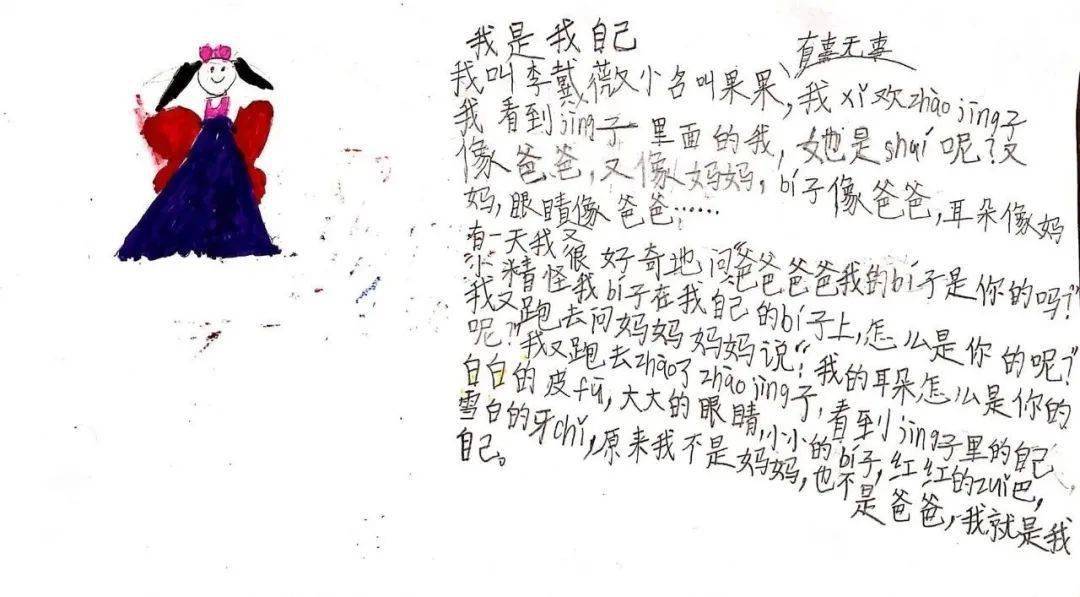 我是我自己
有事无事
我叫李戴薇小名叫果果,我xǐ欢zhào jìng子
我看到jìng子里面的我,她是shuí呢?又
像爸爸,又像妈妈,bí子像爸爸,耳朵像妈
妈,眼睛像爸爸……
有一天我又很好奇地问爸爸"爸爸我的bí子是你的吗?"
小精怪我bí子在我自己的bí子上,怎么是你的呢?"
我又跑去问妈妈 妈妈说:"我的耳朵怎么是你的
呢?"我又跑去zhào了zhào jìng子,看到jìng子里的自己
白白的皮fū,大大的眼睛,小小的bí子,红红的zuǐ巴,
雪白的牙chǐ,原来我不是妈妈,也不是爸爸,我就是我
自己。